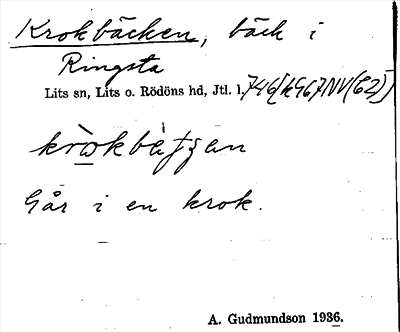 Krokbäcken, bäck i
Ringsta
Lits sn, Lits o. Rödöns hd, Jtl. l.
kròkbät̀ʃan
Går i en krok.
A. Gudmundson 1986.